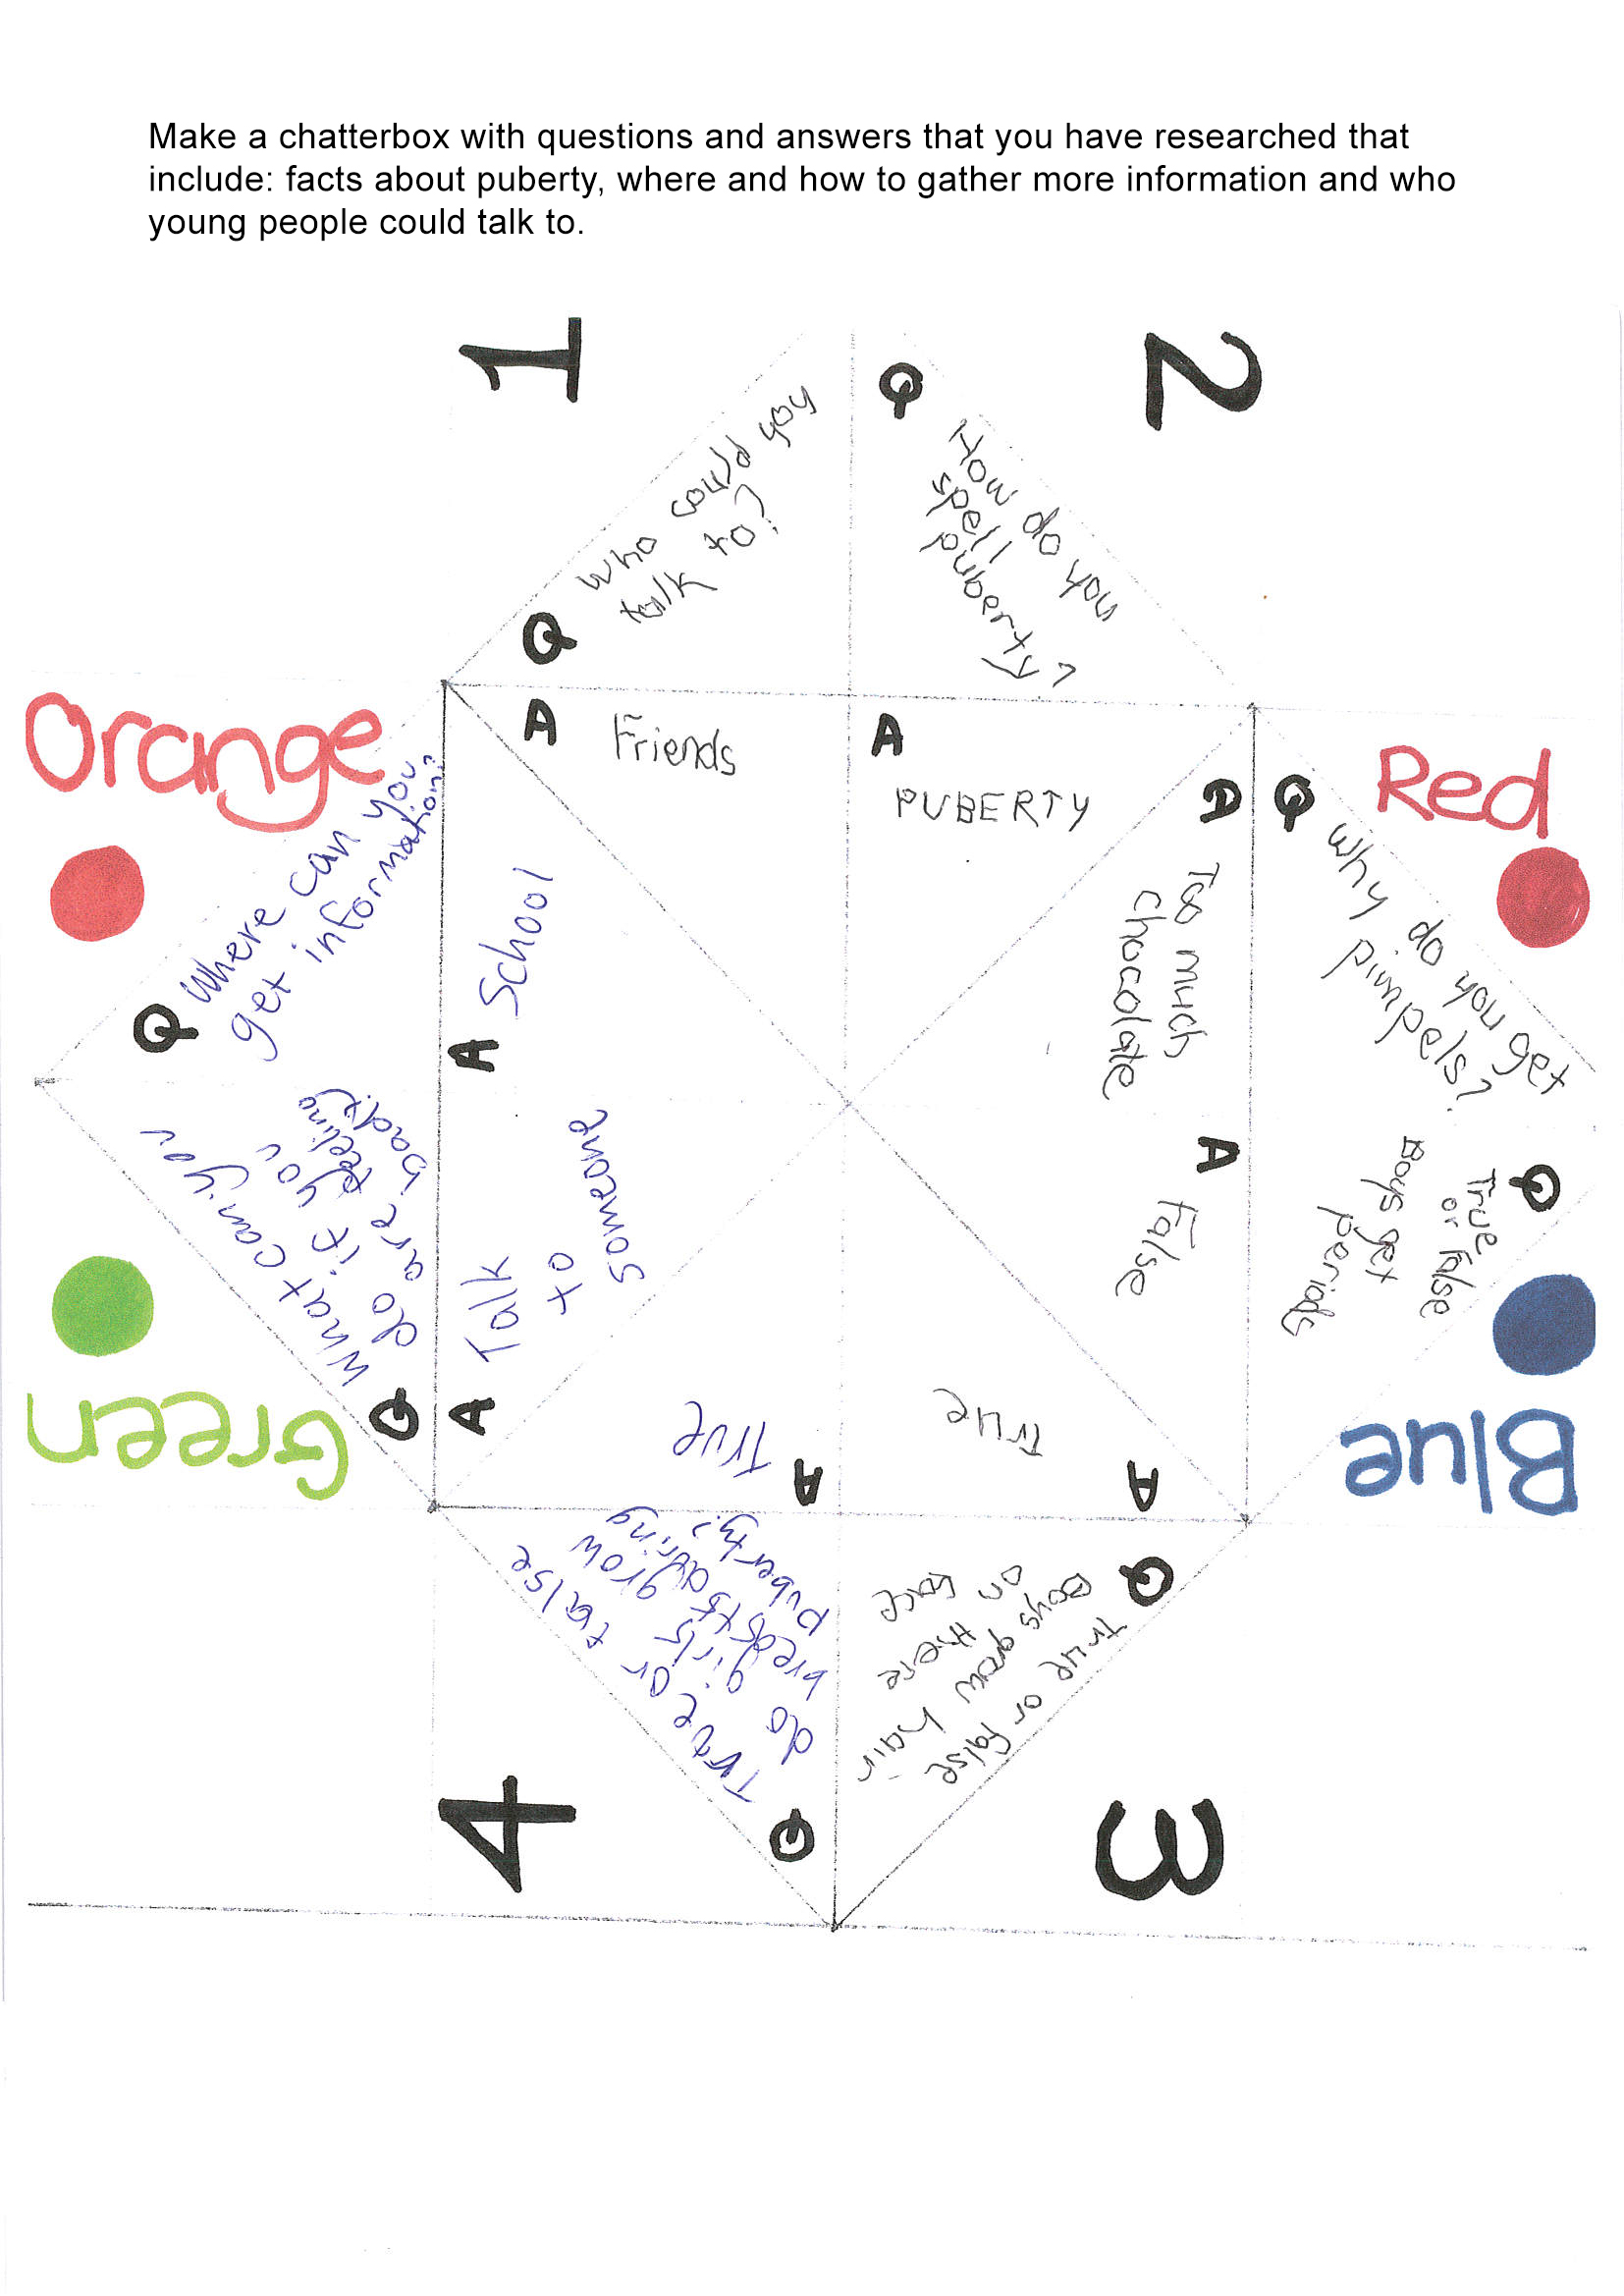 Make a chatterbox with questions and answers that you have researched that
include: facts about puberty, where and how to gather more information and who
young people could talk to.
1
2
Q
Who could you
talk to?
Q
How do you
spell
puberty?
A
Friends
A
PUBERTY
Orange
Q
Where can you
get information?
A
School
Red
Q
Why do you get
pimpels?
A
Too much
chocolate
Q
True
or False
Boys get
periods
A
False
Blue
Green
Q
What can you
do if you
are feeling
bad?
A
Talk
to
someone
A
True
Q
True or false
do girls grow
breasts during
puberty?
A
True
Q
True or false
Boys grow hair
on there
face
4
3